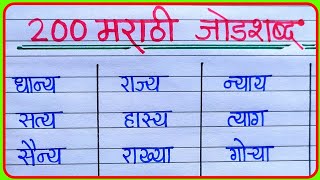 200 मराठी जोडशब्द
धान्य राज्य न्याय
सत्य हास्य त्याग
सैन्य राख्या गोऱ्या